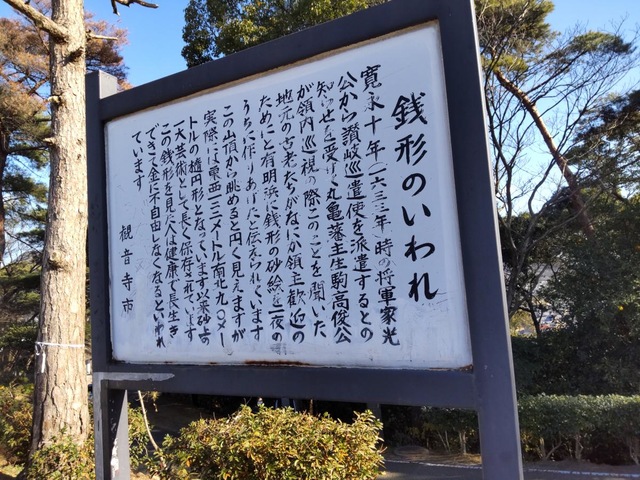 銭形のいわれ
寛永十年(一六三三年)時の将軍家光
公から讃岐巡遣使を派遣するとの
知らせを受けた丸亀藩主生駒高俊公
が領内巡視の際このことを聞いた
地元の古老たちがなにか領主歓迎の
ためにと有明浜に銭形の砂絵を一夜の
うちに作りあげたと伝えられています
この山頂から眺めると円く見えますが
実際には東西一二二メートル南北九〇メー
トルの楕円形となっています以来砂上の
一大芸術として長く保存されています
この銭形を見た人は健康で長生き
できて金に不自由しなくなるといわれ
ています
観音寺市